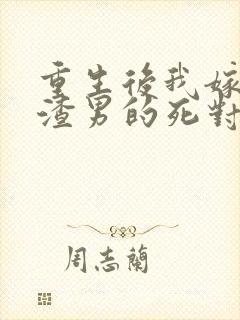 重生後我嫁
渣男的死對
周志蘭